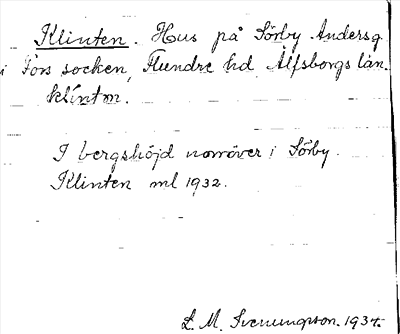 Klinten. Hus på Sörby Andersg.
i Fors socken, Flundre hd Älfsborgs län.
klintn.
I bergshöjd norröver i Sörby.
Klinten ml 1932.
L. M. Svenungsson. 1934.